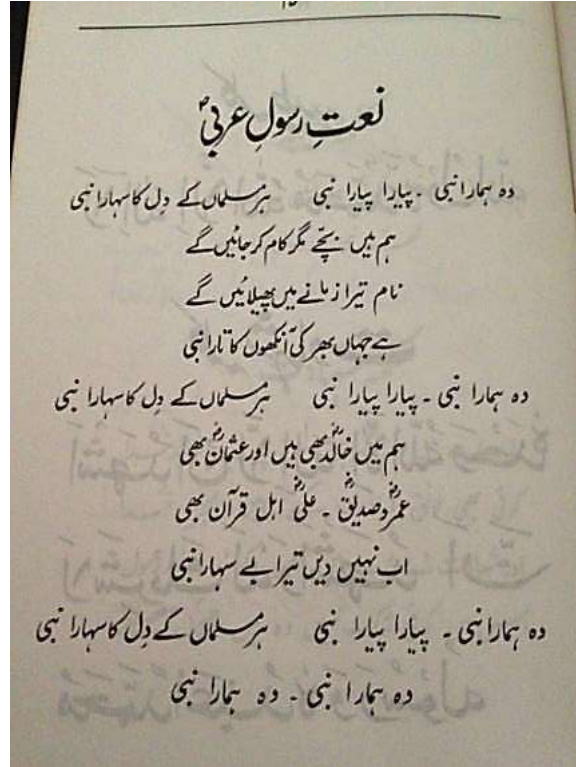 نعتِ رسولِ عربیؐ
وہ ہمارا نبی ۔ پیارا پیارا نبی ہر مسلماں کے دِل کا سہارا نبی
ہم ہیں بچے مگر کام کر جائیں گے
نام تیرا زمانے میں پھیلائیں گے
ہے جہاں بھر کی آنکھوں کا تارا نبی
وہ ہمارا نبی ۔ پیارا پیارا نبی ہر مسلماں کے دِل کا سہارا نبی
ہم میں خالدؓ بھی ہیں اور عثمانؓ بھی
عمرؓ و صدیقؓ ۔ علیؓ اہل قرآن بھی
اب نہیں دیں تیرا بے سہارا نبی
وہ ہمارا نبی ۔ پیارا پیارا نبی ہر مسلماں کے دِل کا سہارا نبی
وہ ہمارا نبی ۔ وہ ہمارا نبی